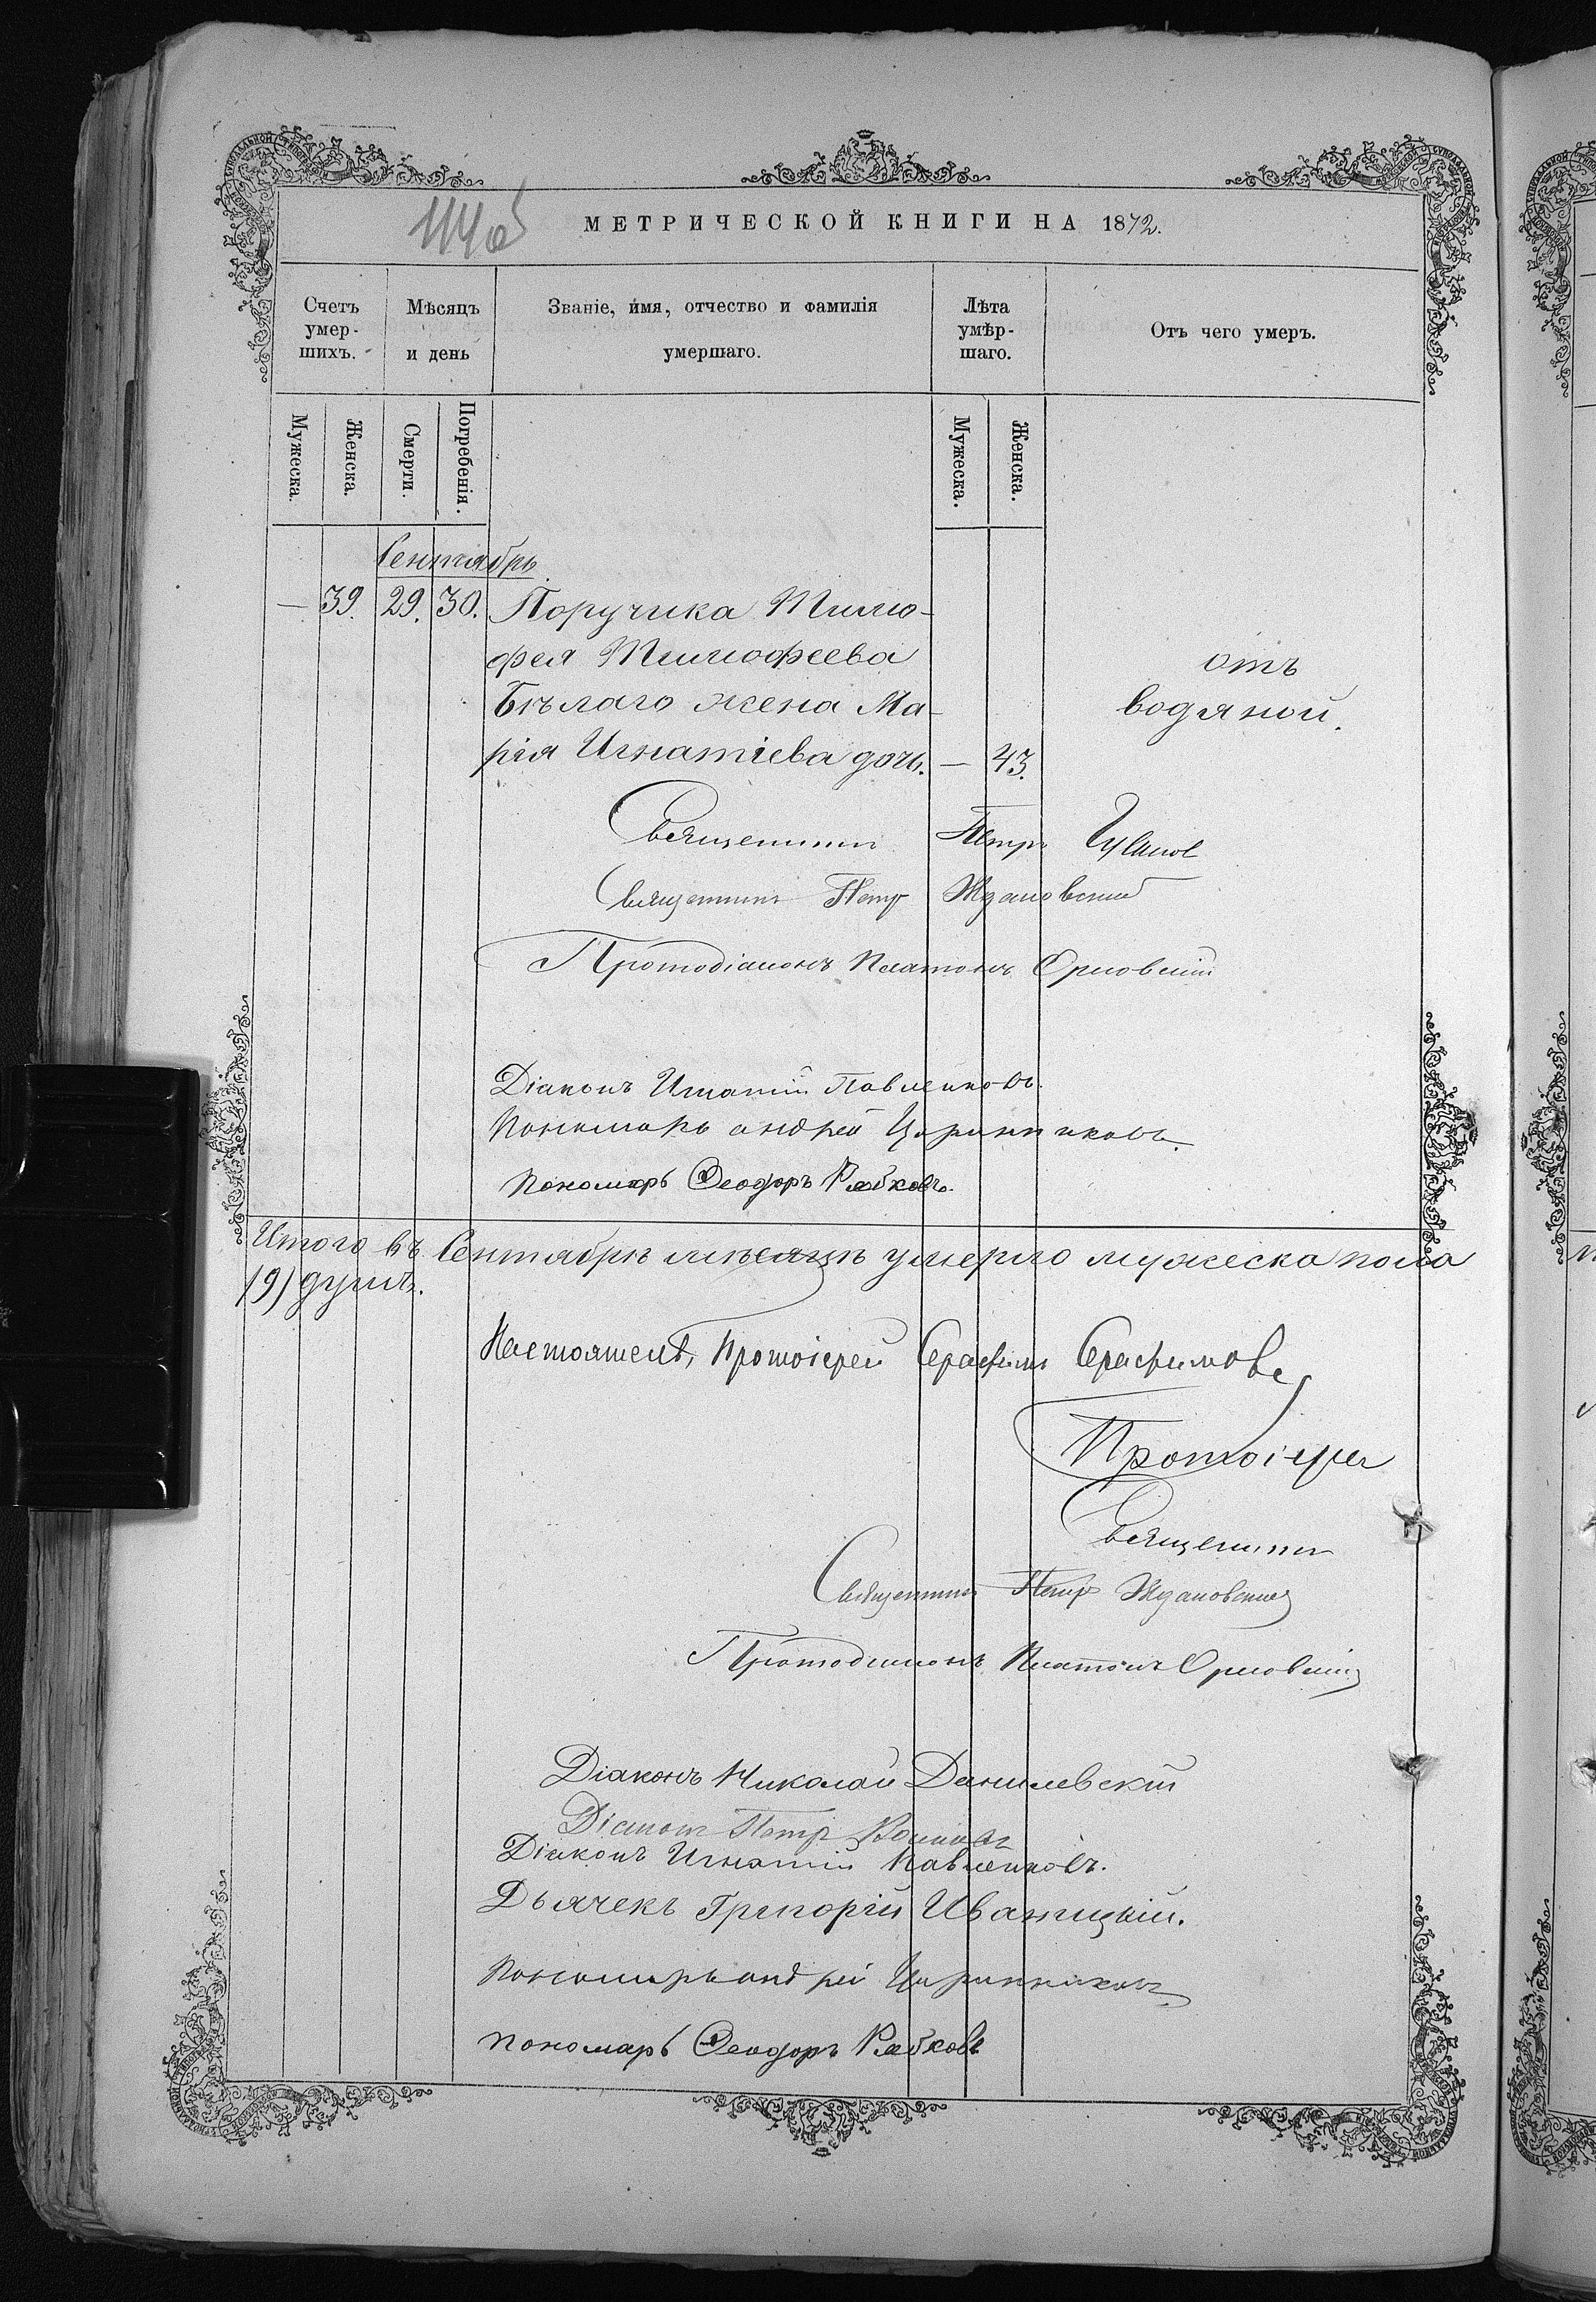 МЕТРИЧЕСКОЙ КНИГИ НА 1872.
Счетъ умер-шихъ.
Мѣсяцъ и день
Званіе, имя, отчество и фамилія умершаго.
Лѣта умѣр-шаго.
Отъ чего умеръ.
Мужеска.
Женска.
Смерти.
Погребенія.
Мужеска.
Женска.
Сентябрь
— 39. 29. 30. Поручика Тимо-
фея Тимофеева
Бѣлаго жена Ма-
рія Игнатіева дочь. — 43.
отъ
водяной.
Священникъ Петръ
Священникъ Петръ Ждановскій
Протодіаконъ Платонъ Орловскій
Діаконъ Игнатій Павленковъ.
Пономарь Андрей
Пономарь Ѳеодоръ Рябковъ.
Итого въ Сентябрѣ мѣсяцѣ умерло мужеска пола
19) душъ.
Настоятель, Протоіерей Серафимъ Серафимовъ
Протоіерей
Священникъ
Священникъ Петръ Ждановскій
Протодіаконъ Платонъ Орловскій
Діаконъ Николай Данилевскій
Діаконъ Петръ
Діаконъ Игнатій Павленковъ.
Дьячекъ Григорій Иваницкій.
Пономарь Андрей
Пономарь Ѳеодоръ Рябковъ